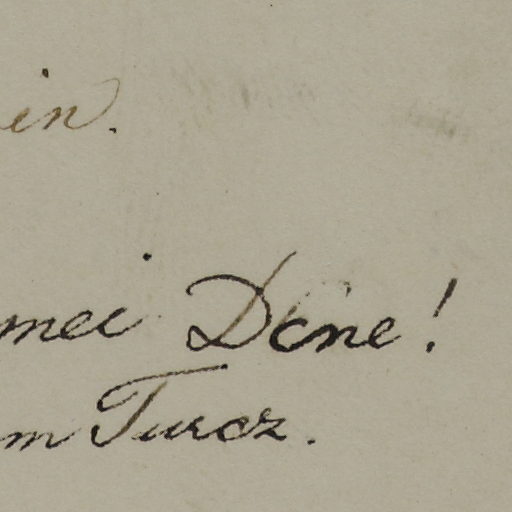 in.
mei Dcne!
m Turcz.